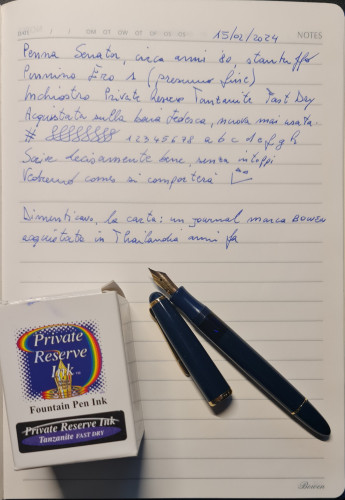 DATE / / MON TUE WED THU FRI SAT SUN NOTES
15/02/2024
Penna Senator, circa anni 60, stantuffo
Pennino Ero 1 (presumo fine)
Inchiostro Private Reserve Tanzanite Fast Dry
Acquistata sulla baia tedesca, nuova mai usata.
# 1 2 3 4 5 6 7 8 a b c d e f g h
Scrive decisamente bene, senza intoppi
Vedremo come si comporterà
Dimenticavo, la carta: un journal marca BOWEN
acquistato in Thailandia anni fa
Private
Reserve
Ink
Fountain Pen Ink
Private Reserve Ink
Tanzanite FAST DRY
Bowen